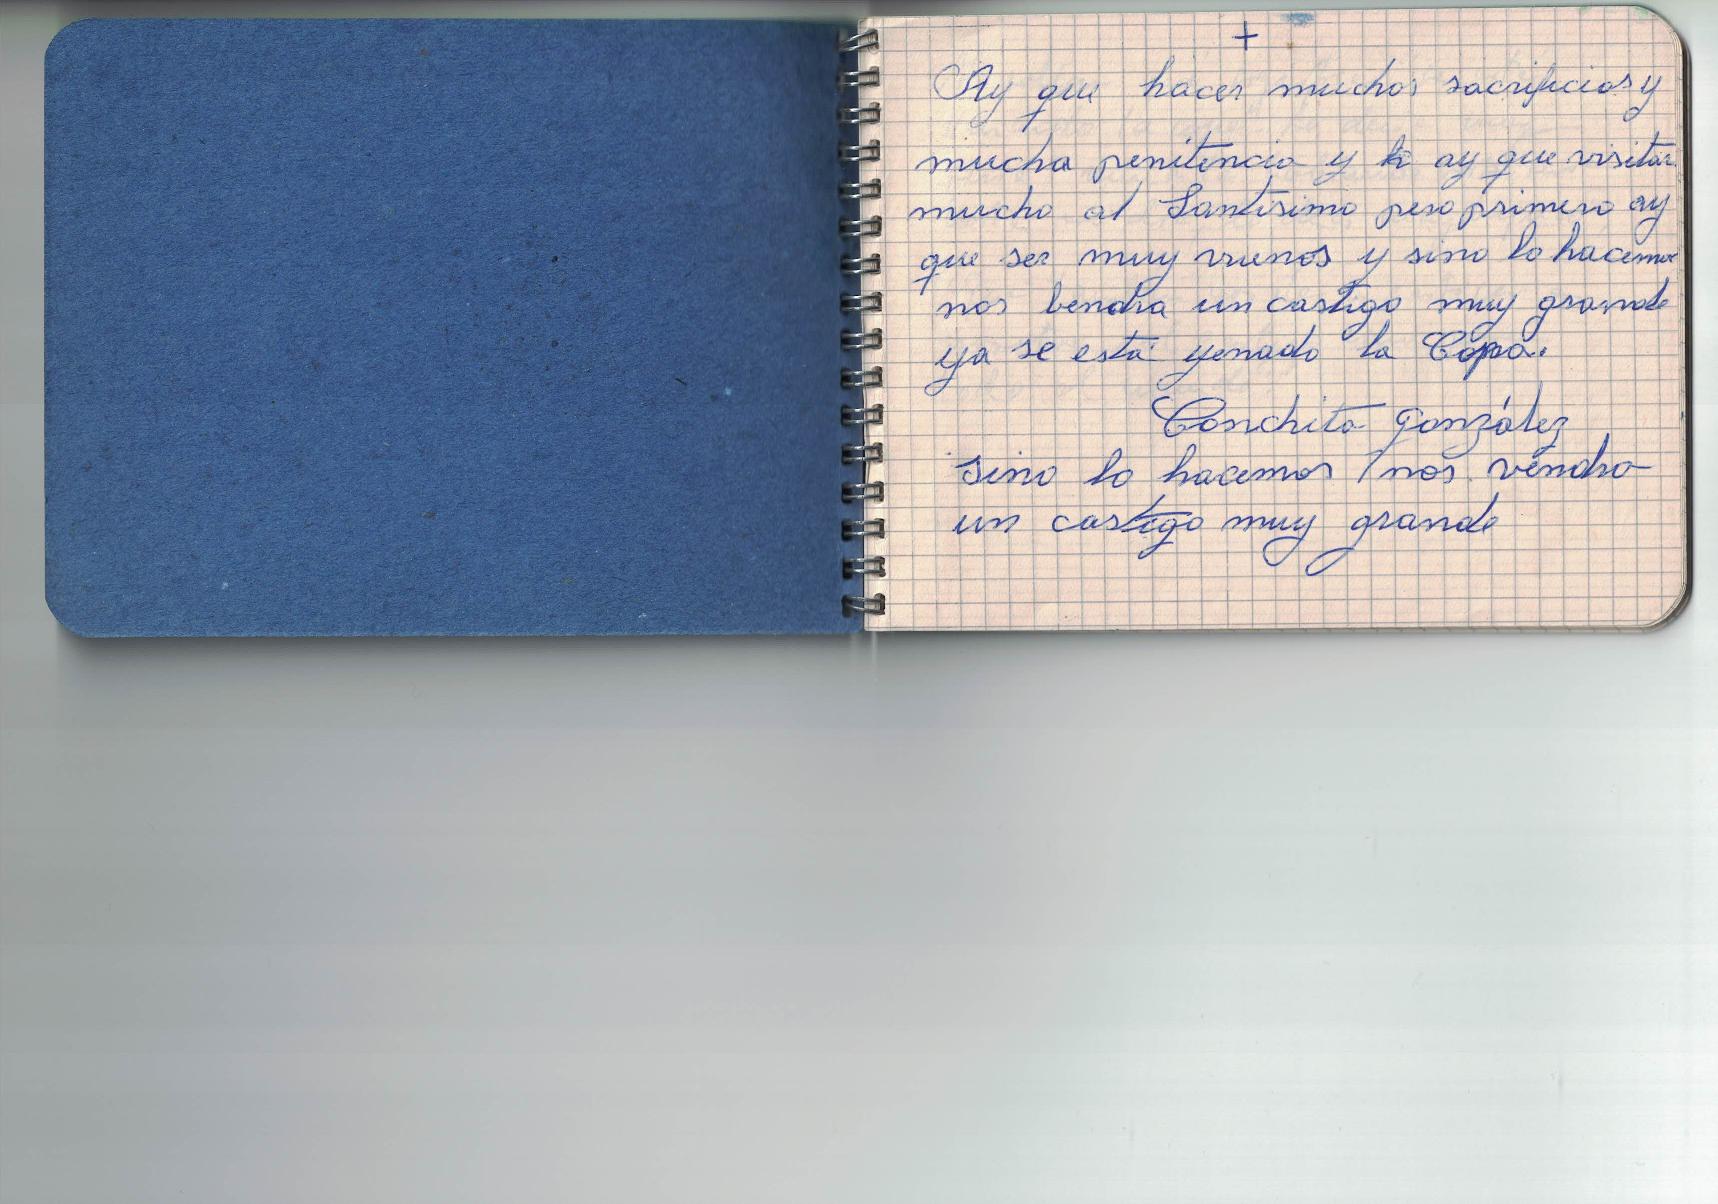 +
Ay que hacer muchos sacrificios y
mucha penitencia y ay que visitar
mucho al Santísimo pero primero ay
que ser muy vuenos y sino lo hacemos
nos bendra un castigo muy grande
ya se está yenado la Copa.
Conchita González
sino lo hacemos nos vendra
un castigo muy grande